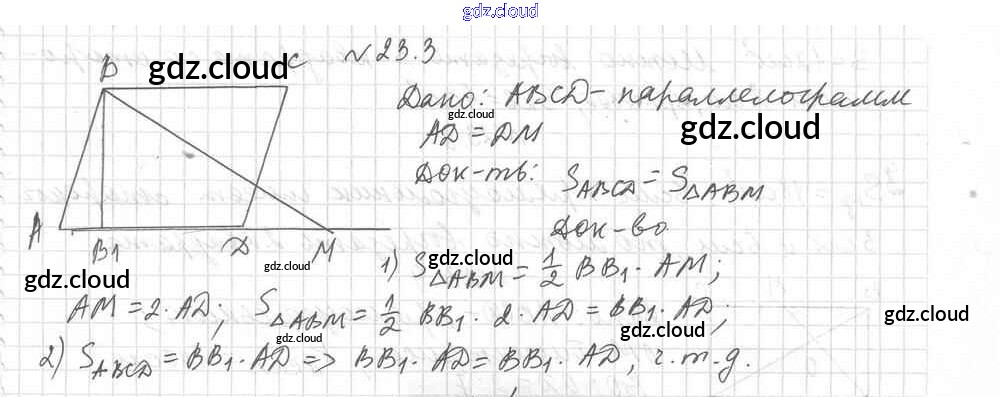 gdz.cloud
№ 23.3
B C
gdz.cloud
Дано: ABCD - параллелограмм
gdz.cloud
AD = DM
gdz.cloud
Док-ть: S ABCD = S△ABM
Док-во
A B1 D M
gdz.cloud
gdz.cloud
1) S△ABM = 1/2 BB1 · AM;
AM = 2 · AD; S△ABM = 1/2 BB1 · 2 · AD = BB1 · AD;
gdz.cloud
gdz.cloud
2) S ABCD = BB1 · AD => BB1 · AD = BB1 · AD, ч.т.д.
gdz.cloud